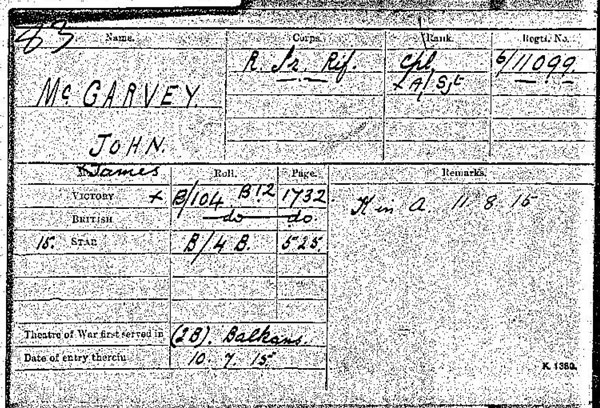 83
Name. Corps. Rank. Regtl. No.
McGARVEY. R. Ir. Rif. Cpl 6/11099
x A/Sjt
JOHN.
James
Roll. Page. Remarks.
VICTORY x B/104 B12 1732 K in A 11.8.15
BRITISH do do
15. STAR B/4 B. 525.
Theatre of War first served in (2B). Balkans.
Date of entry therein 10.7.15.
K. 1380.